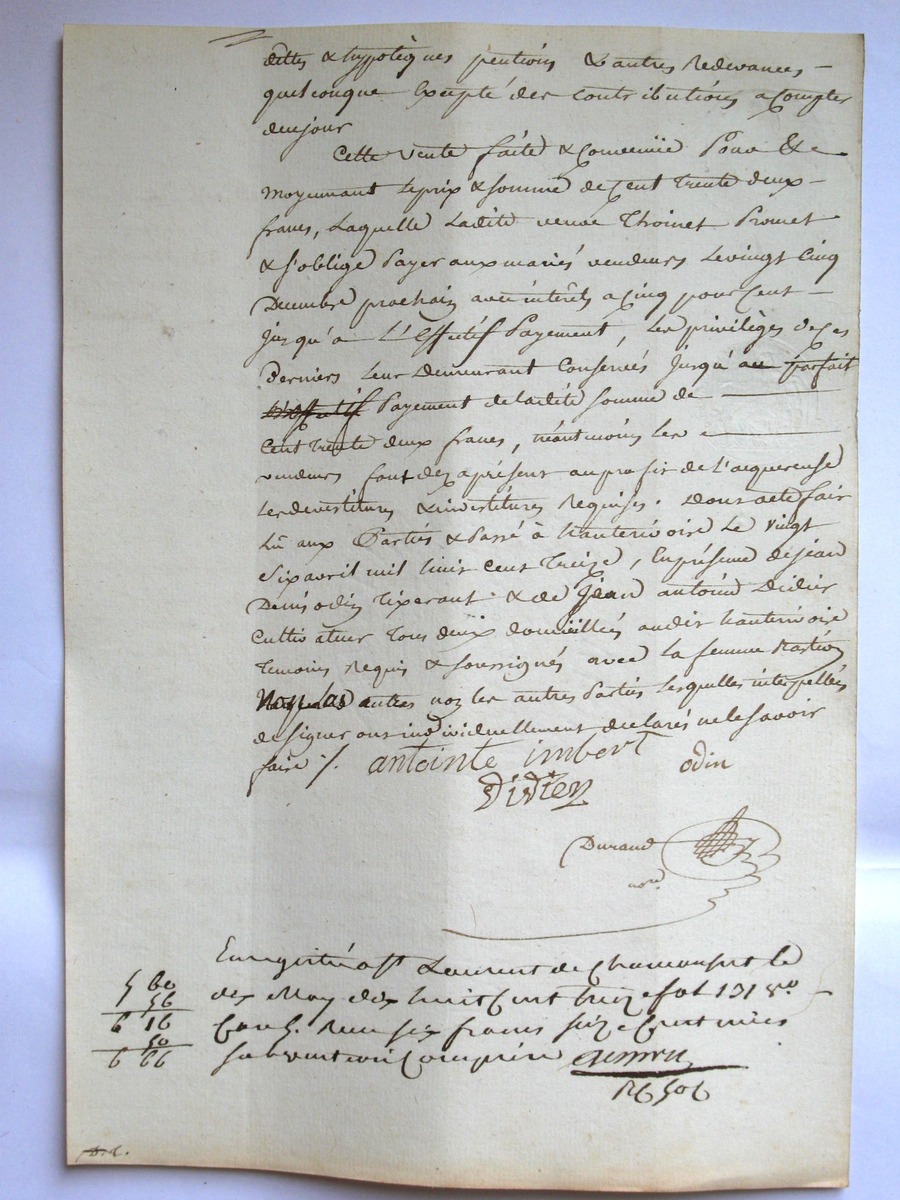 dettes & hypotèques pentions & autres Redevances
quelconque Exepté des contributions a Compter
de ce jour
Cette vente faite & Convenüe Pour &
Moyennant le prix & somme de Cent trente deux
francs, Laquelle Ladite veuve Thoinet Promet
& s'oblige Payer aux mariés vendeurs le vingt Cinq
Decembre prochain avec intérêts a Cinq pour Cent
jusqu'a L'Effectif Payement, les privilèges de Ces
Derniers leur demeurant Conservés jusqu'au parfait
L'Effectif Payement de ladite somme de
Cent trente deux francs, néantmoins les
vendeurs font dez a présent au profit de l'acquereuse
les devestitures & investitures Requises. Dont acte fait
Lû aux Parties & Passé à hauterivoire le vingt
Six avril mil huit Cent treize, En présence de jean
Denis odin tixerant & de jean antoine Didier
Cultivateur tous deux domicilliés audit hauterivoire
temoins Requis & soussignés avec la femme
autres non les autres Parties lesquelles interpellées
de signer ont individuellement declarés ne le savoir
faire /. antointe imbert odin
Didier
Durand
nore
Enregistré a St Laurent de Chamousset le
dix May dix huit Cent treize fol 131 vo
Cat 5. Reçu six francs seize Centimes
subvention Comprise
5 60
56
6 16
50
6 66
R6506
D.C.